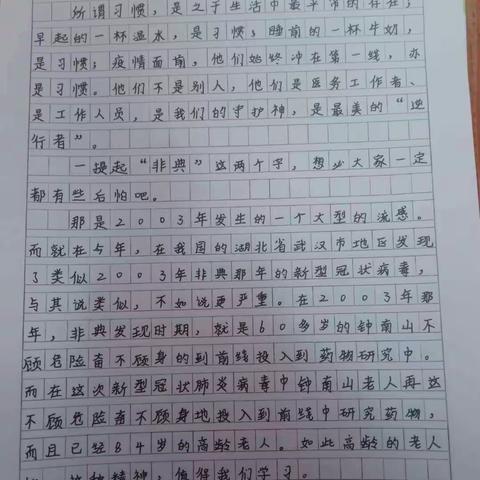 所谓习惯，是之于生活中最平常的存在；
早起的一杯温水，是习惯；睡前的一杯牛奶，
是习惯；疫情面前，他们始终冲在第一线，亦
是习惯。他们不是别人，他们是医务工作者、
是工作人员，是我们的守护神，是最美的“逆
行者”。
一提起“非典”这两个字，想必大家一定
都有些后怕吧。
那是2003年发生的一个大型的流感。
而就在今年，在我国的湖北省武汉市地区发现
了类似2003年非典那年的新型冠状病毒，
与其说类似，不如说更严重。在2003年那
年，非典发现时期，就是60多岁的钟南山不
顾危险奋不顾身的到前线投入到药物研究中。
而在这次新型冠状肺炎病毒中钟南山老人再这
不顾危险奋不顾身地投入到前线中研究药物，
而且已经84岁的高龄老人。如此高龄的老人
精神，值得我们学习。